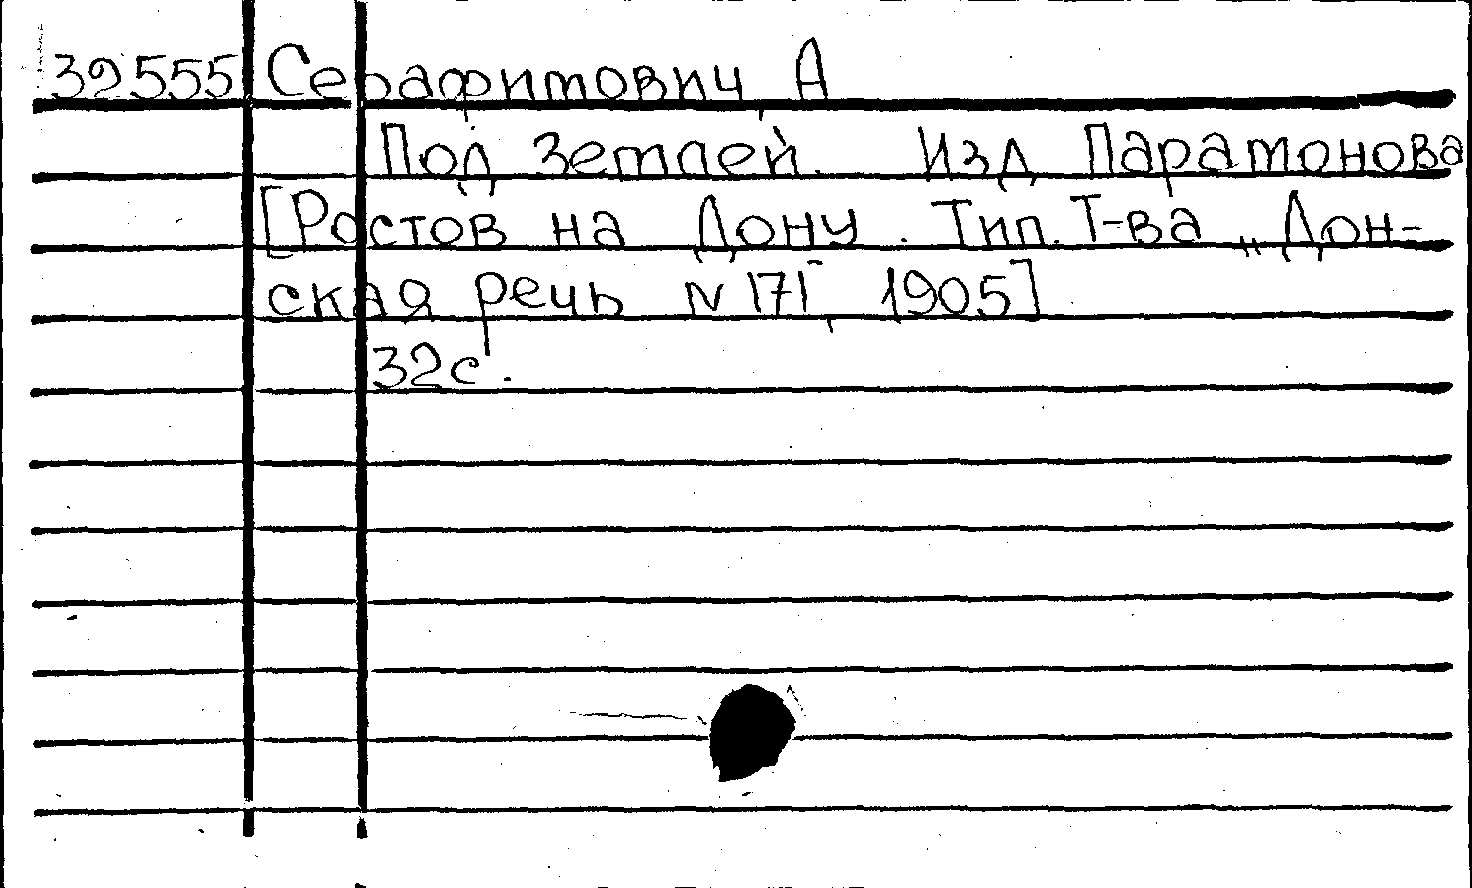 39555 Серафимович, А
Под землей. Изд Парамонова
[Ростов на Дону. Тип. Т-ва „Дон-
ская речь N 171, 1905]
32с.